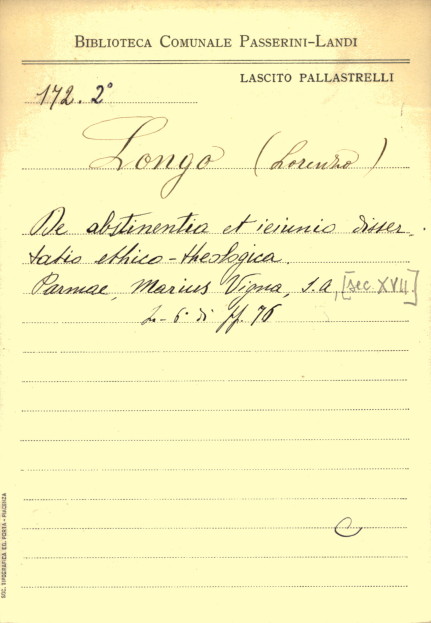 BIBLIOTECA COMUNALE PASSERINI-LANDI
LASCITO PALLASTRELLI
172. 2°
Longo (Lorenzo)
De abstinentia et ieiunio disser-
tatio ethico-theologica.
Parmae, Marius Vigna, s.a, [sec XVII]
in-6° di ff. 76
C
SOC. TIPOGRAFICA ED. PORTA - PIACENZA